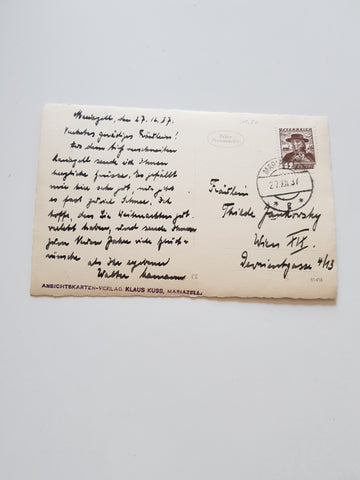 Mariazell, den 27.12.37.
Verehrtes gnädiges Fräulein!
Aus dem tief verschneiten
Mariazell sende ich Ihnen
herzliche Grüsse. Es gefällt
mir hier sehr gut, nur gibt
es fast zuviel Schnee. Ich
hoffe, dass Sie Weihnachten gut
verlebt haben, und sende Ihnen
zum Neuen Jahre viele Glück-
wünsche als Ihr ergebener
Walter
ANSICHTSKARTEN-VERLAG KLAUS KUSS, MARIAZELL.
Echte
Photographie
ÖSTERREICH
MARIAZELL
27.XII.37
Fräulein
Jankovsky
Wien XIX.
Devrientgasse 4/13